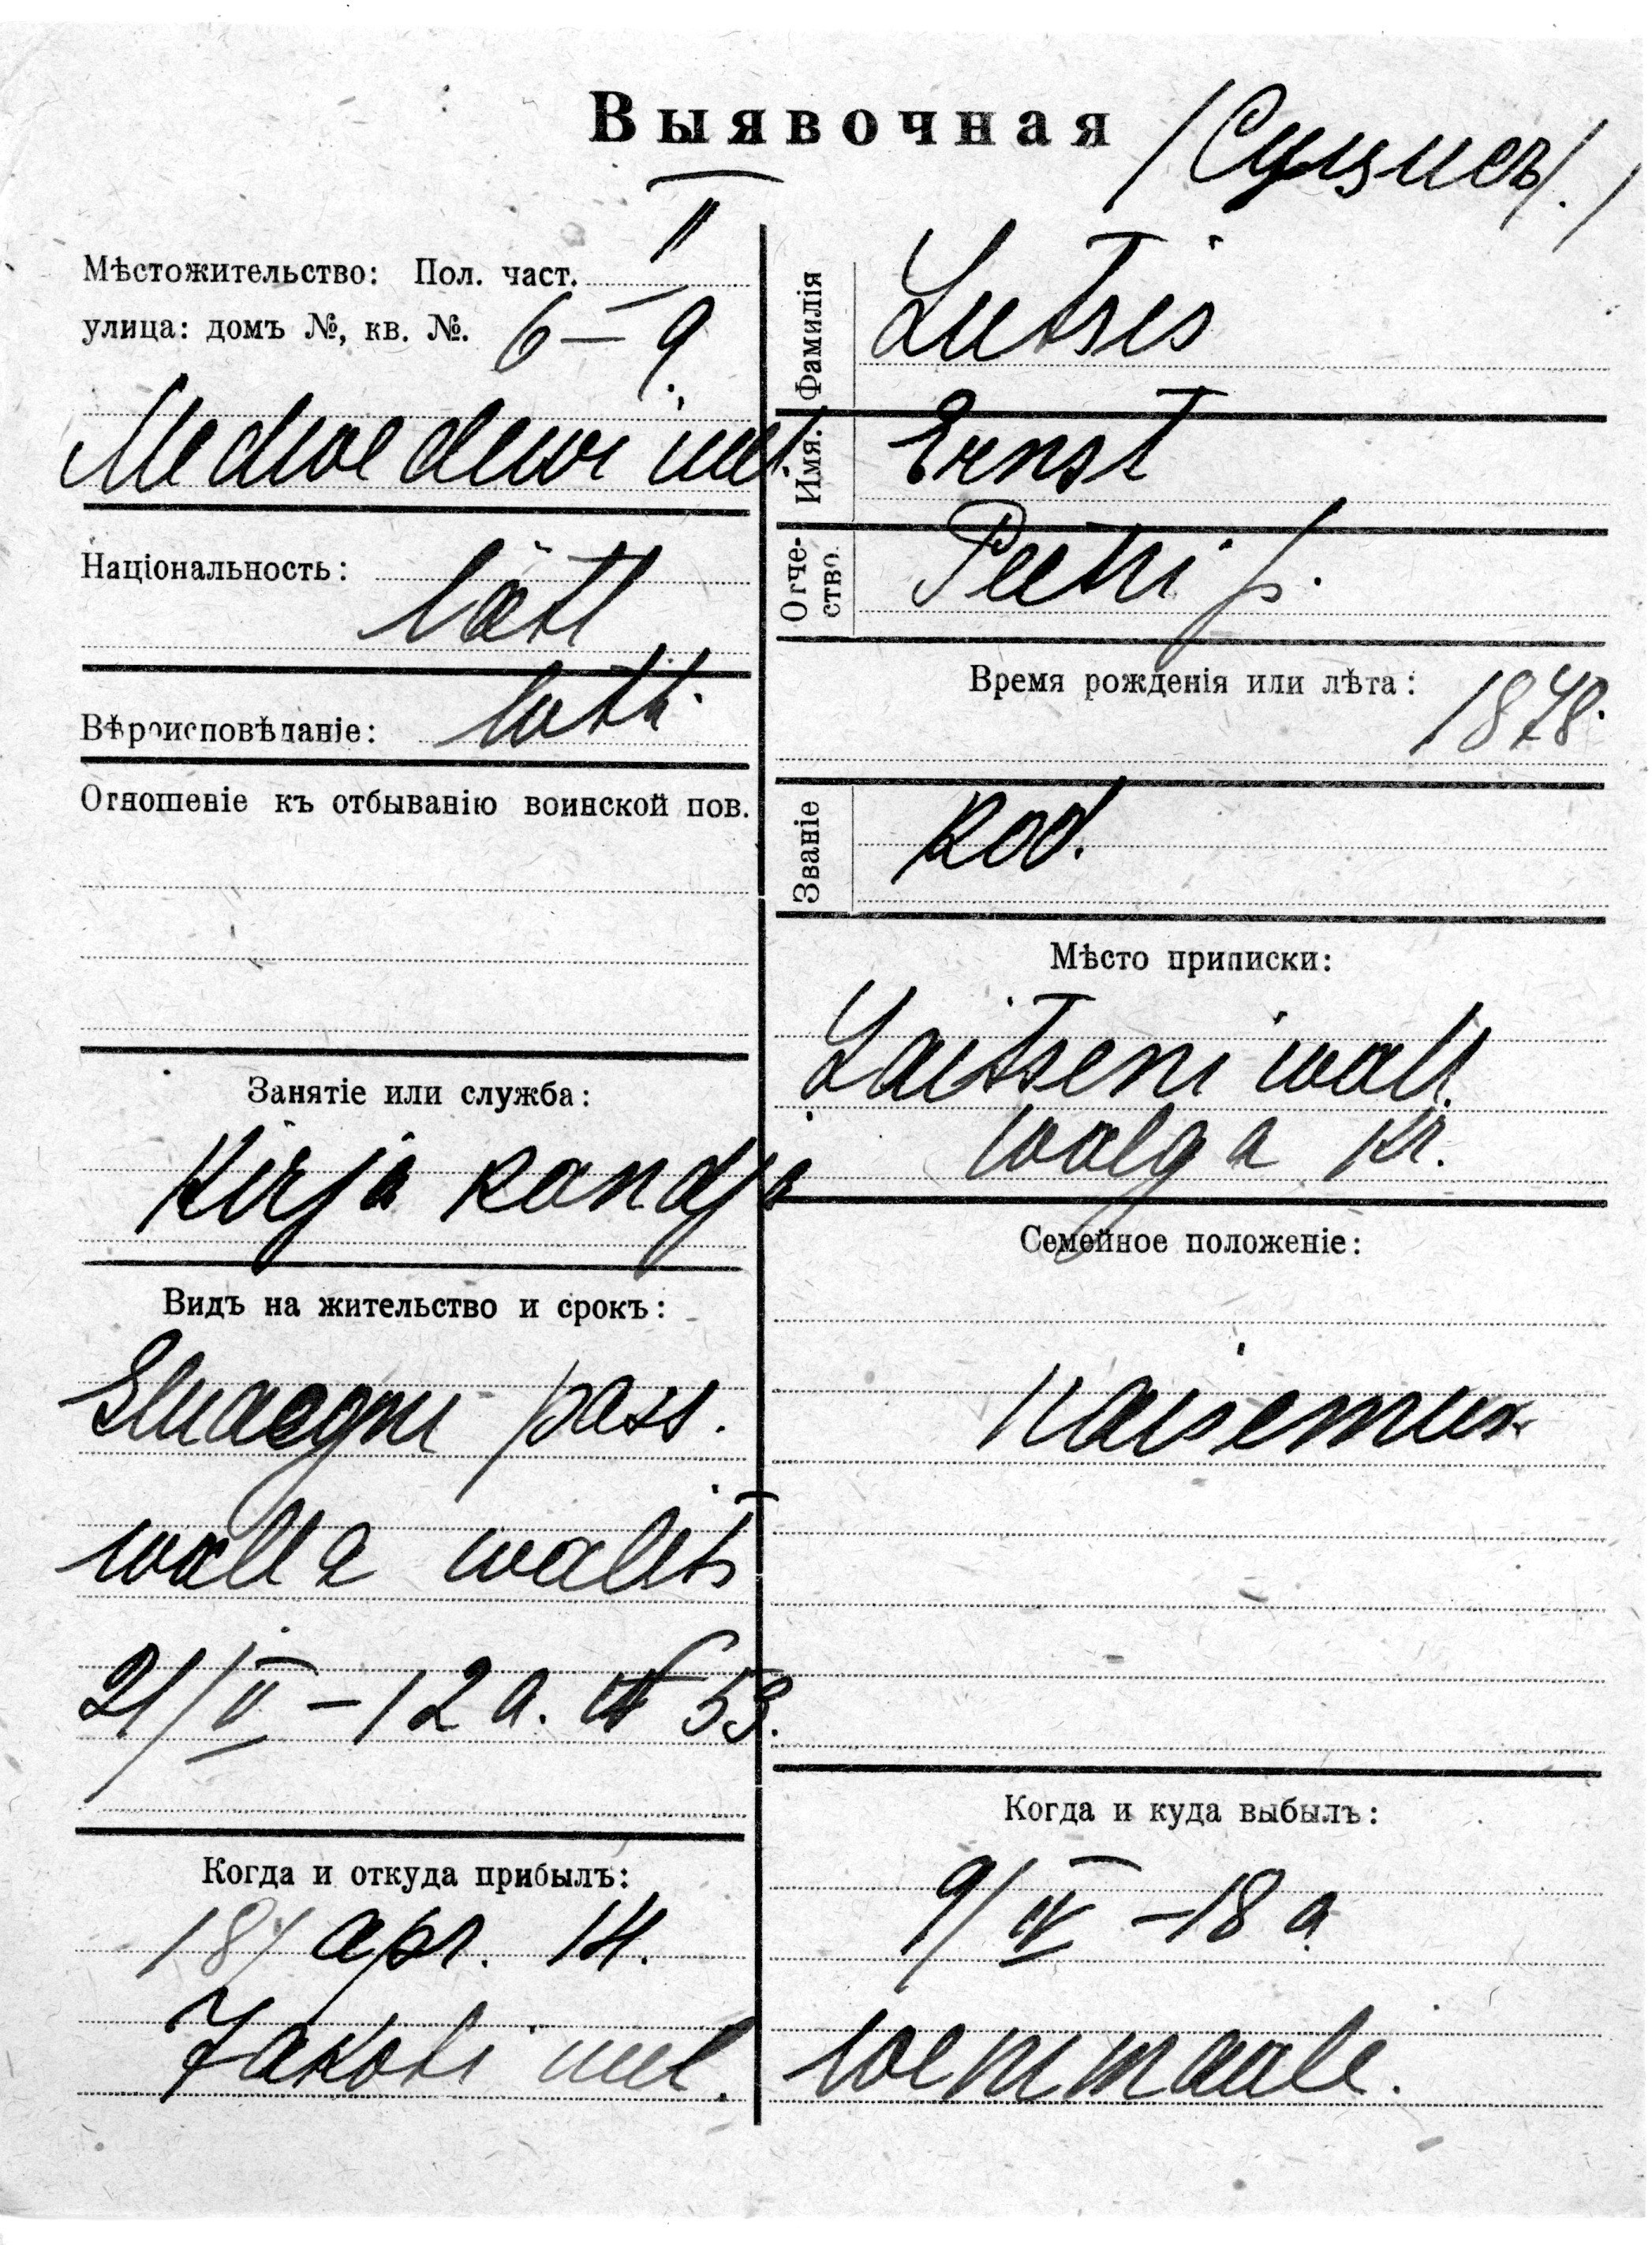 Выявочная
Мѣстожительство: Пол. част. II
улица: домъ №, кв. №. 6–9.
Medwedewi uul.
Національность: lätl
Вѣроисповѣданіе: luth.
Отношеніе къ отбыванію воинской пов.
Занятіе или служба:
Kirja kandja
Видъ на жительство и срокъ:
pass.
walla walits
21/II – 12 a. № 53.
Когда и откуда прибылъ:
18/ apr. 14.
Jakobi uul.
Фамилія Lutsis
Имя. Ernst
Отчество. Peetri p.
Время рожденія или лѣта: 1878.
Званіе kod.
Мѣсто приписки:
Laitseni wall.
Walga kr.
Семейное положеніе:
naisemees
Когда и куда выбылъ:
9/IV – 18 a
wenemaale.